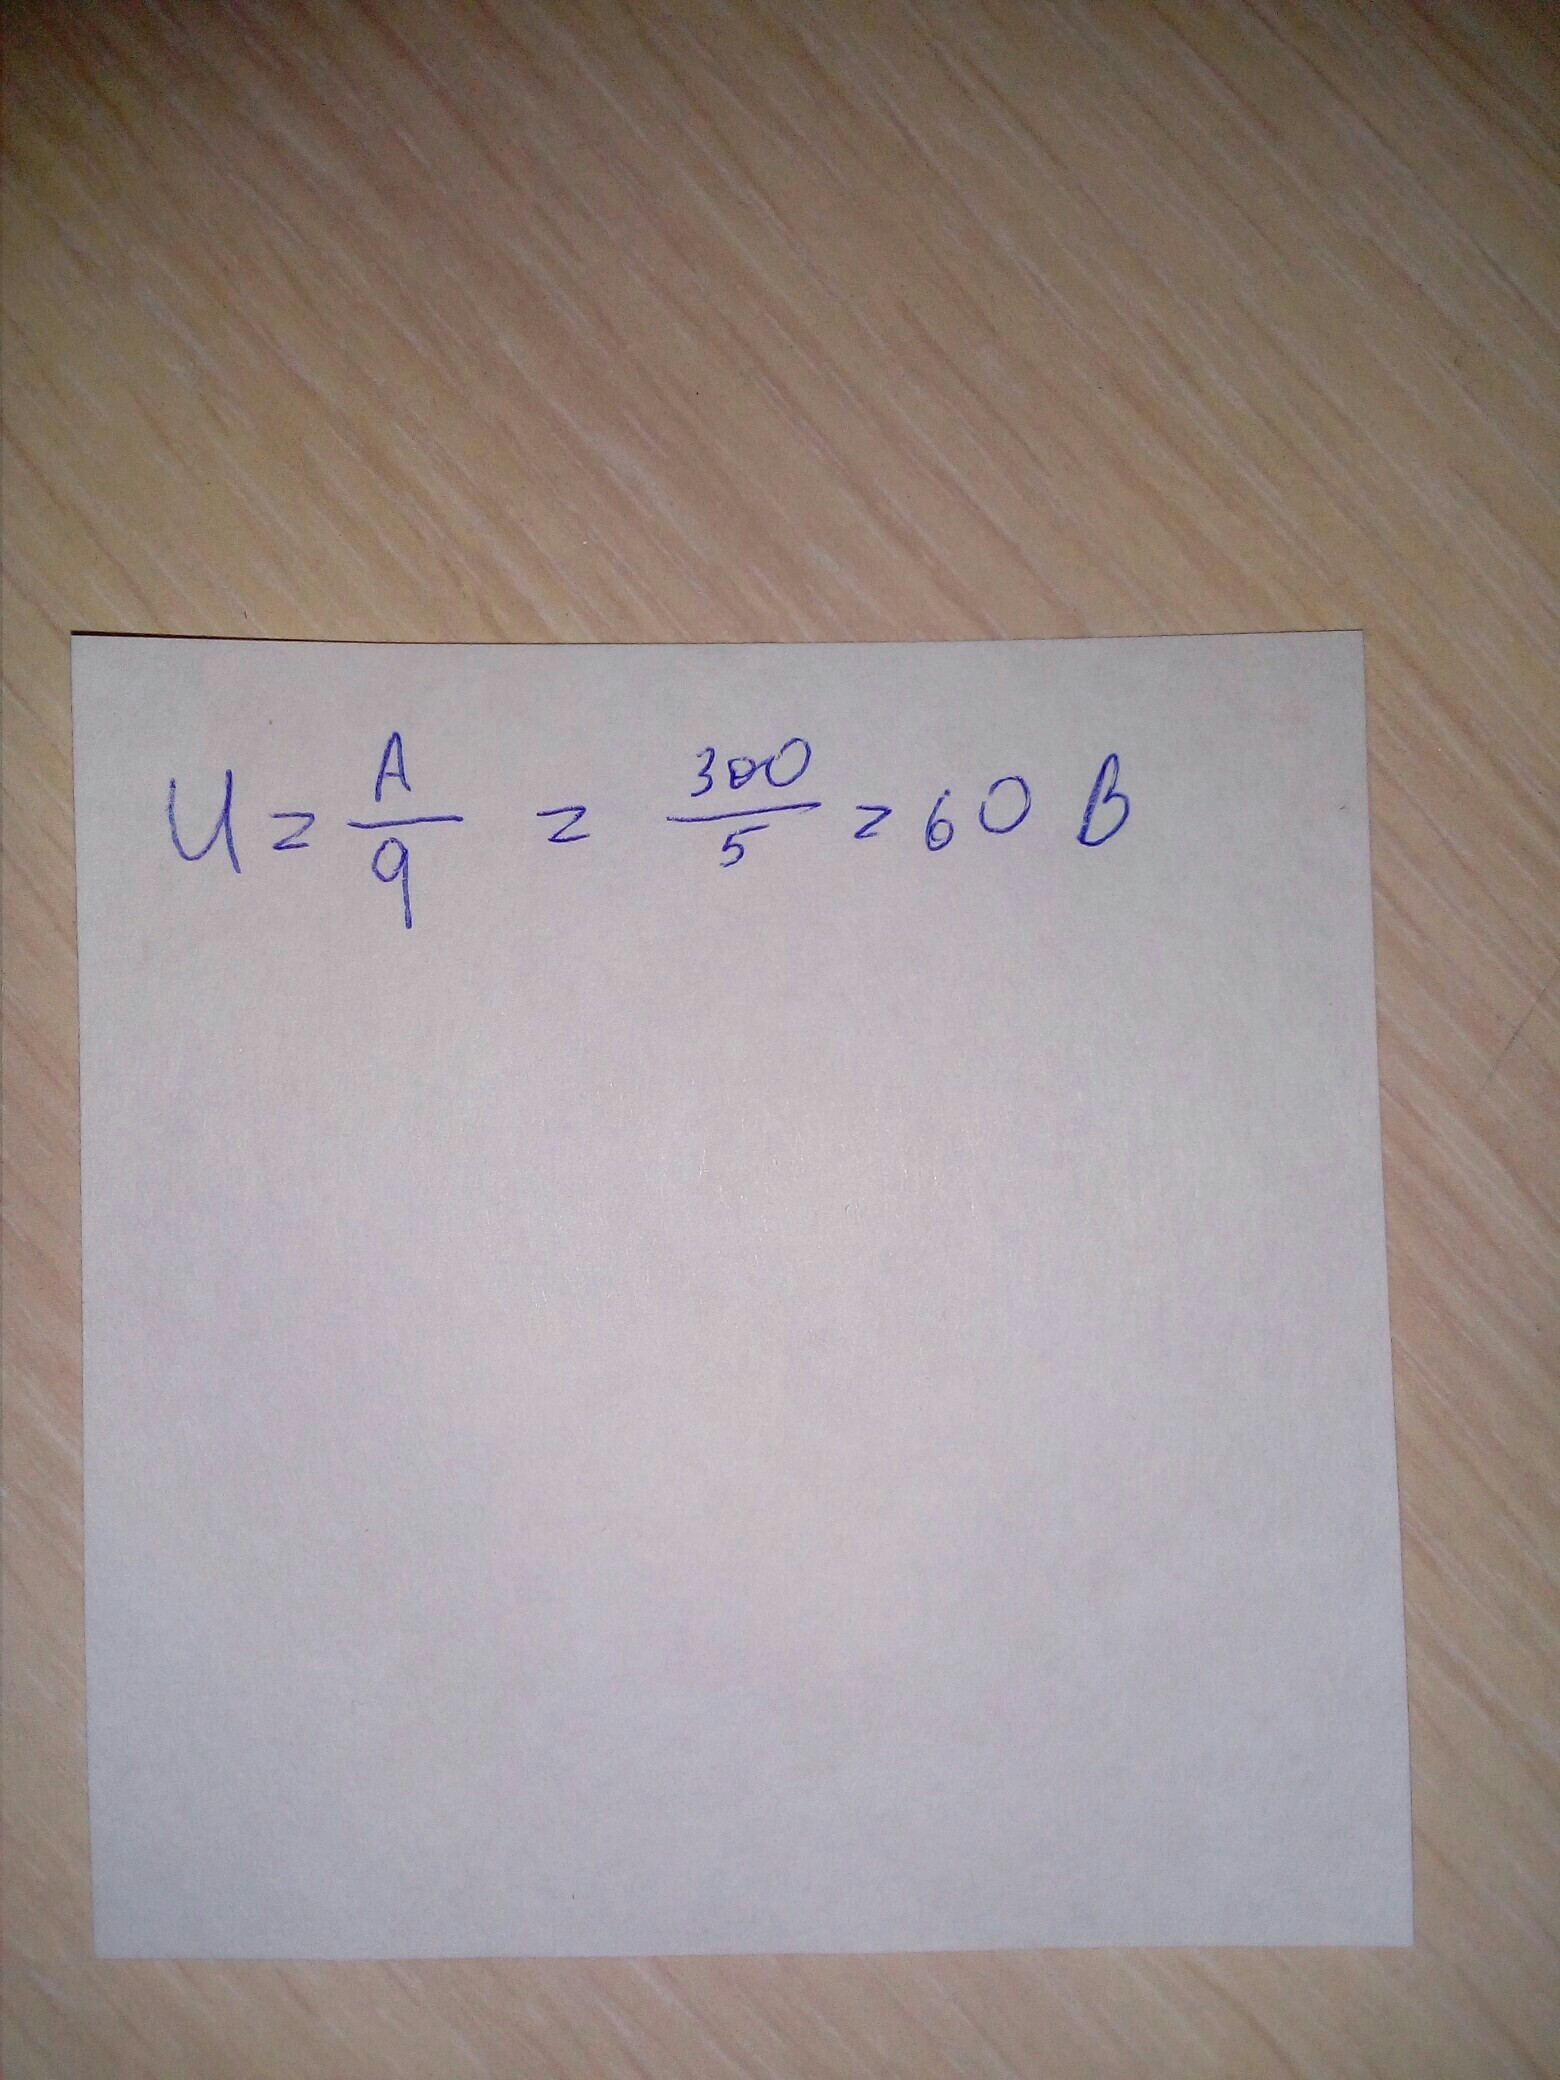 U = A/q = 300/5 = 60 В